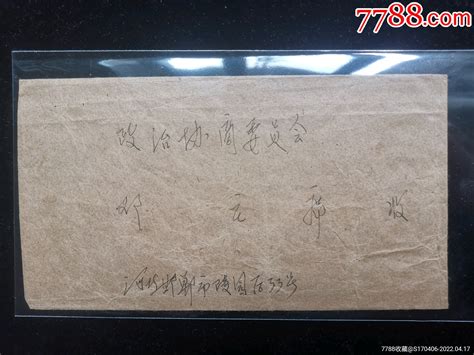 7788.com
政治协商委员会
邓 主 席 收
河北邯郸市陵园路33号
7788收藏@S170406-2022.04.17